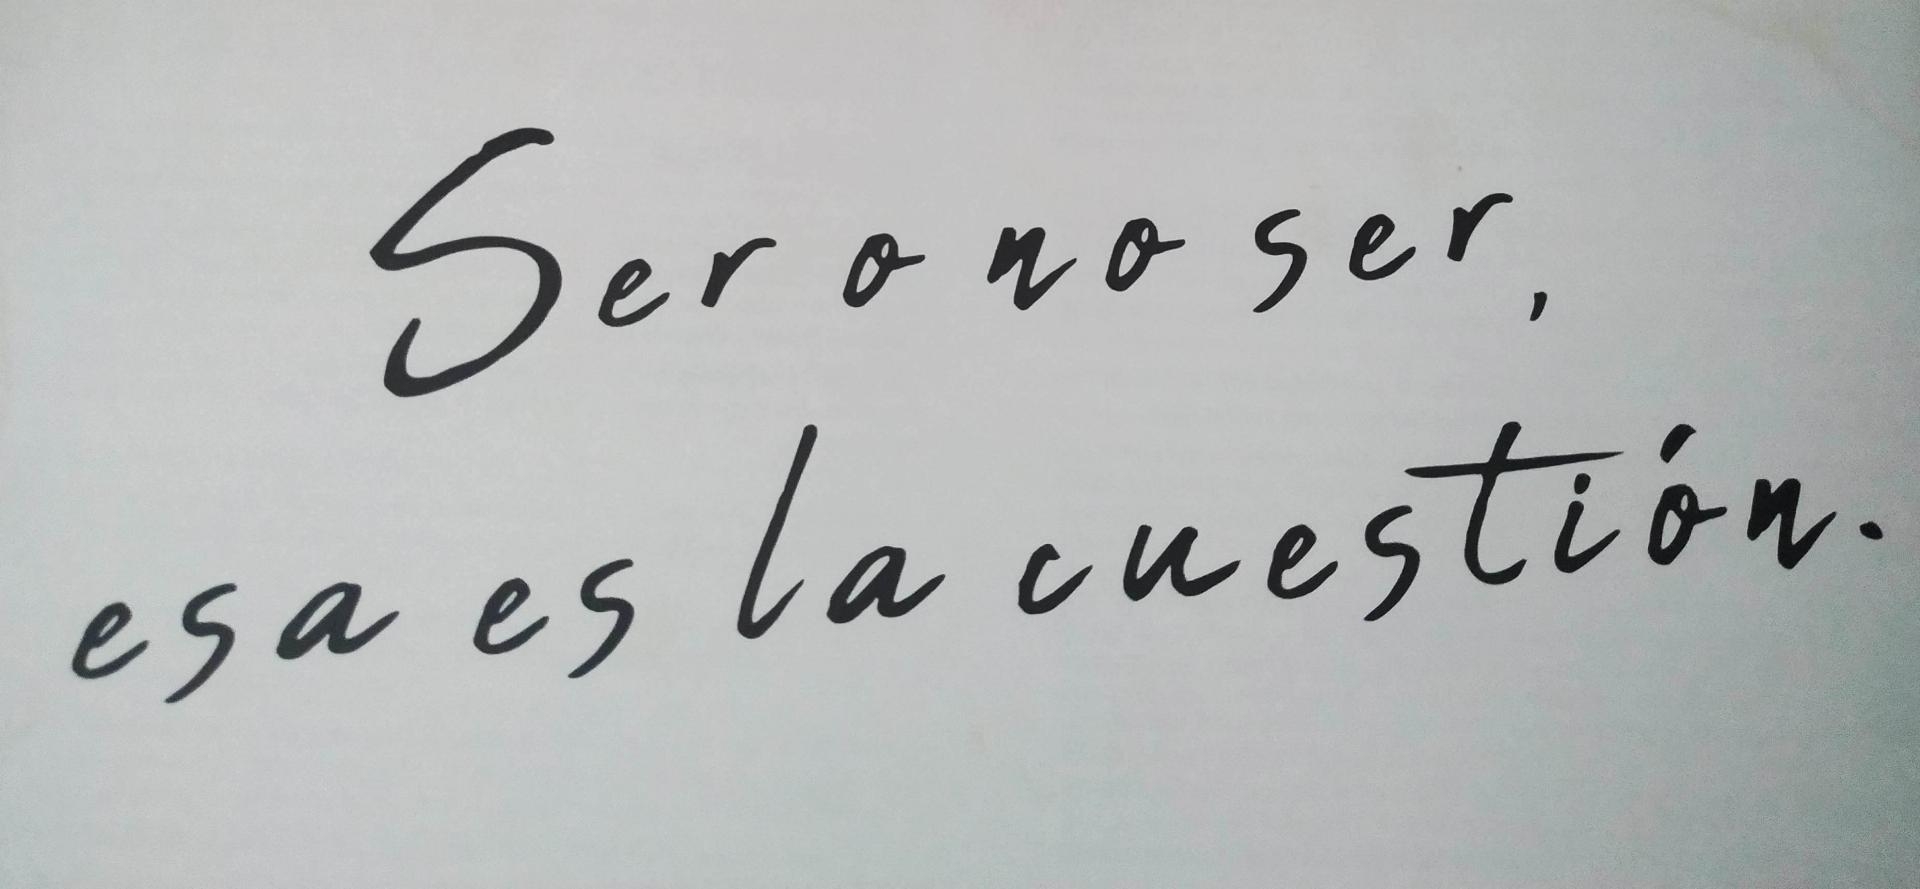 Ser o no ser,
esa es la cuestión.